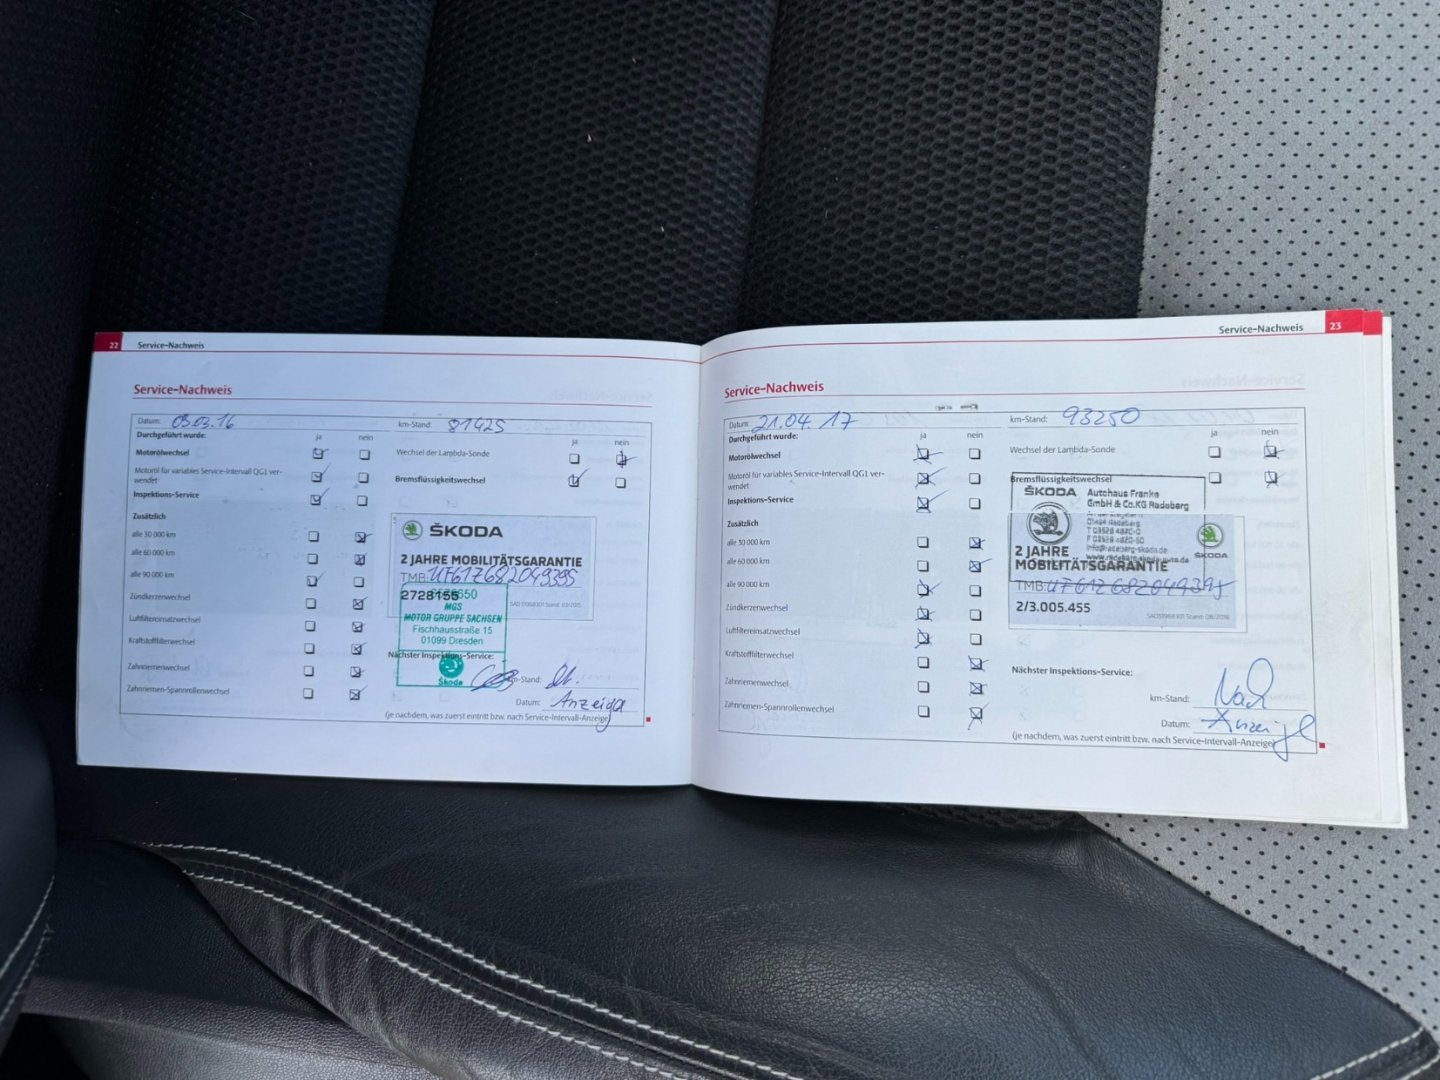 22 Service-Nachweis
Service-Nachweis
Datum: 03.03.16 km-Stand: 81425
Durchgeführt wurde: ja nein ja nein
Motorölwechsel Wechsel der Lambda-Sonde
Motoröl für variables Service-Intervall QG1 ver-
wendet Bremsflüssigkeitswechsel
Inspektions-Service
Zusätzlich
alle 30 000 km
alle 60 000 km
alle 90 000 km
Zündkerzenwechsel
Luftfiltereinsatzwechsel
Kraftstofffilterwechsel
Zahnriemenwechsel
Zahnriemen-Spannrollenwechsel
ŠKODA
2 JAHRE MOBILITÄTSGARANTIE
TMB:
2728155
MGS
MOTOR GRUPPE SACHSEN
Fischhausstraße 15
01099 Dresden
Skoda
Nächster Inspektions-Service:
km-Stand:
Datum: Anzeige
(je nachdem, was zuerst eintritt bzw. nach Service-Intervall-Anzeige)
Service-Nachweis 23
Service-Nachweis
Datum: 21.04.17 km-Stand: 93250
Durchgeführt wurde: ja nein ja nein
Motorölwechsel Wechsel der Lambda-Sonde
Motoröl für variables Service-Intervall QG1 ver-
wendet Bremsflüssigkeitswechsel
Inspektions-Service
Zusätzlich
alle 30 000 km
alle 60 000 km
alle 90 000 km
Zündkerzenwechsel
Luftfiltereinsatzwechsel
Kraftstofffilterwechsel
Zahnriemenwechsel
Zahnriemen-Spannrollenwechsel
ŠKODA Autohaus Franke
GmbH & Co.KG Radeberg
ŠKODA
2 JAHRE
MOBILITÄTSGARANTIE
TMB:
2/3.005.455
Nächster Inspektions-Service:
km-Stand: Nach
Datum: Anzeige
(je nachdem, was zuerst eintritt bzw. nach Service-Intervall-Anzeige)